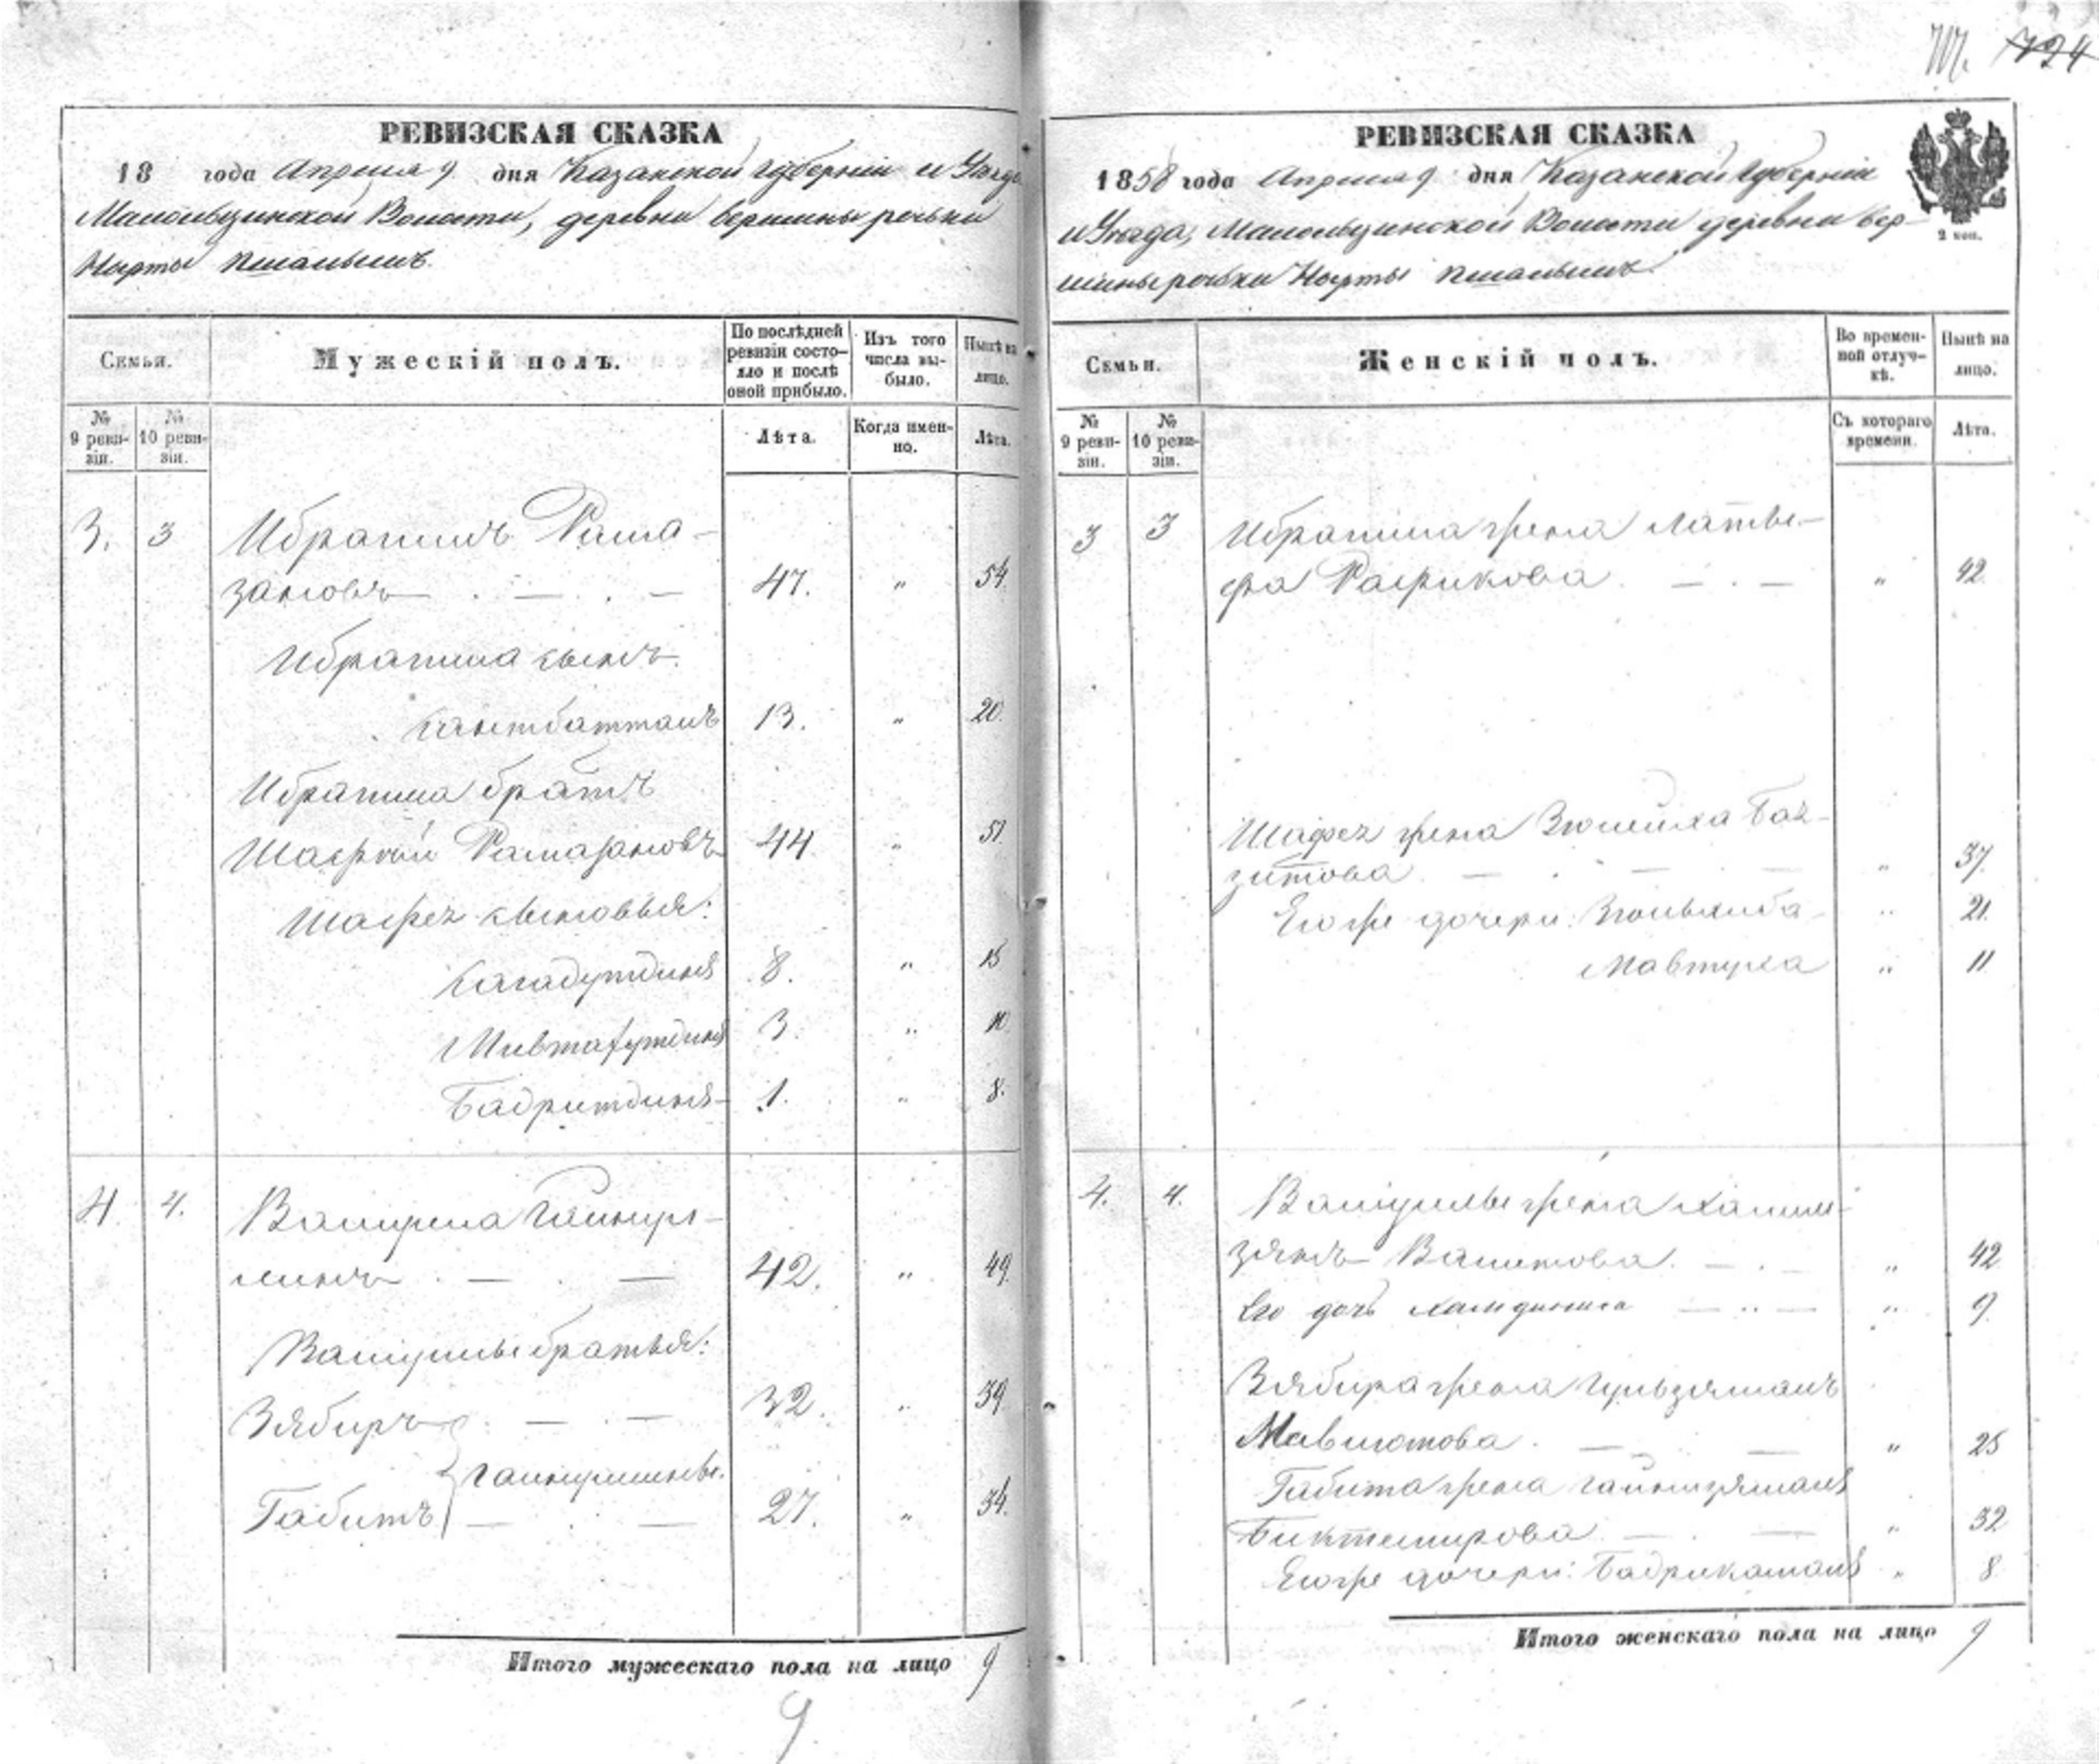 717. 724
РЕВИЗСКАЯ СКАЗКА
18 года Апреля 9 дня Казанской губернии и Уезда
Волости, деревни вершины речьки
Нырты
Семьи.
Мужескій полъ.
По послѣдней ревизіи состояло и послѣ оной прибыло.
Изъ того числа выбыло.
Нынѣ на лицо.
№ 9 ревизіи.
№ 10 ревизіи.
Лѣта.
Когда именно.
Лѣта.
3. 3 Ибрагимъ Рама-
зановъ 47. " 54.
Ибрагима сынъ
13. " 20.
Ибрагима братъ
Шафѣй Рамазановъ 44 " 51
Шафея сыновья:
Сагадутдинъ 8. " 15
Мивтахутдинъ 3. " 10.
Бадритдинъ 1. " 8.
4 4. Валиулла Гайнул-
линъ 42. " 49.
Валиуллы братья:
Зябиръ 32. " 39.
Гайнуллины
Габитъ 27. " 34.
Итого мужескаго пола на лицо 9
9
РЕВИЗСКАЯ СКАЗКА
1858 года Апреля 9 дня Казанской Губернии
и Уезда, Волости деревни вер-
шины речьки Нырты
2 коп.
Семьи.
Женскій полъ.
Во временной отлучкѣ.
Нынѣ на лицо.
№ 9 ревизіи.
№ 10 ревизіи.
Съ котораго времени.
Лѣта.
3 3 Ибрагима жена Латы-
фа Рафикова " 42.
Шафея жена Зюлейха Бая-
зитова " 37.
Его же дочери: Зюльхиба " 21.
Мавтуха " 11
4. 4. Валиуллы жена
Валитова " 42
Его дочь " 9.
Зябира жена Гульзямалъ
Мавлютова " 25
Габита жена Гайнизямалъ
Биктемирова " 32
Его же дочери: Бадрикамалъ " 8
Итого женскаго пола на лицо 9